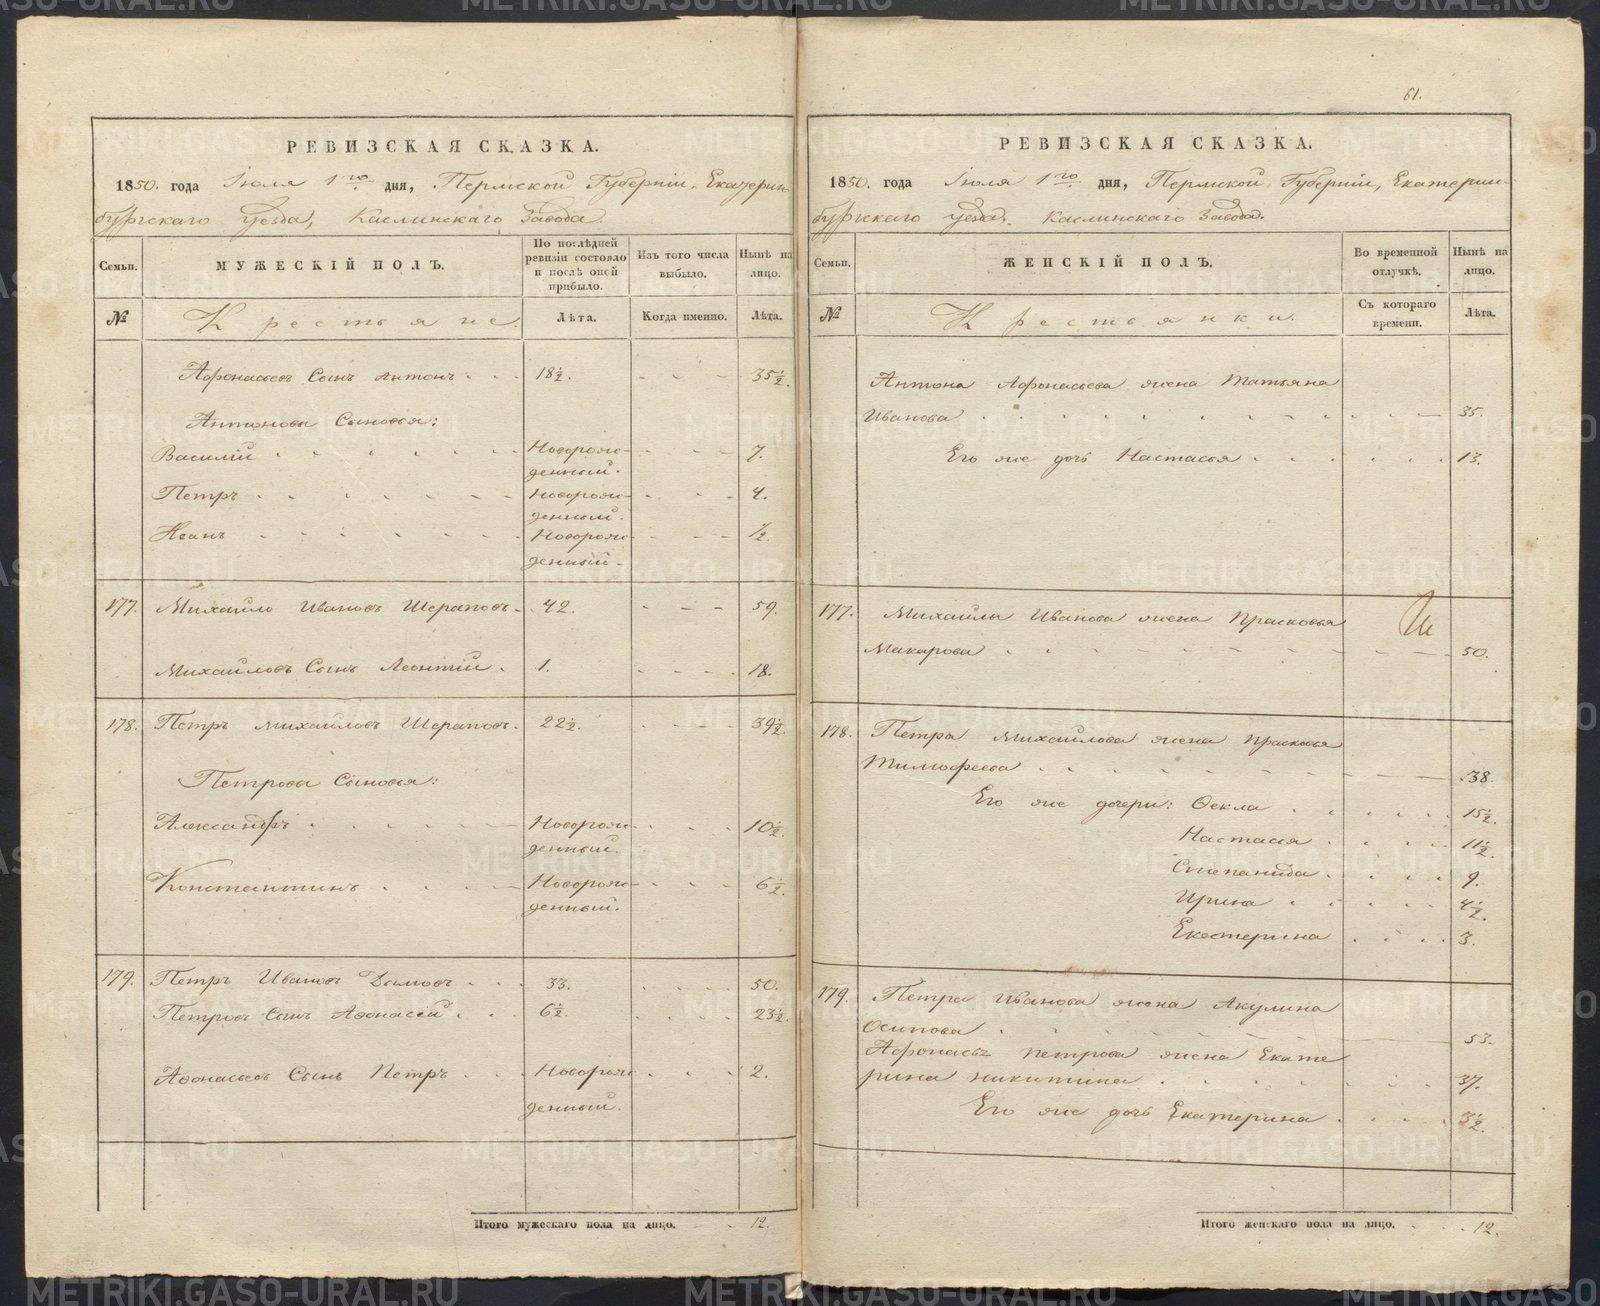 61.
РЕВИЗСКАЯ СКАЗКА.
1850. года Іюля 1го дня, Пермской Губерніи, Екатерин-
бургскаго уезда, Каслинскаго Завода.
Семьи. МУЖЕСКІЙ ПОЛЪ. По послѣдней ревизіи состояло и послѣ оней прибыло. Изъ того числа выбыло. Нынѣ на лицо.
№ Крестьяне. Лѣта. Когда именно. Лѣта.
Афонасьевъ Сынъ Антонъ 18½. 35½.
Антоновы Сыновья:
Василій Новорож-
денный. 7.
Петръ Новорож-
денный. 4.
Иванъ Новорож-
денный ½.
177. Михайло Ивановъ Шераповъ 42. 59.
Михайловъ Сынъ Леонтій 1. 18.
178. Петръ Михайловъ Шераповъ 22½. 39½.
Петровы Сыновья:
Александръ Новорож-
денный. 10½.
Константинъ Новорож-
денный. 6½.
179. Петръ Ивановъ 33. 50.
Петровъ Сынъ Афонасей 6½. 23½.
Афонасьевъ Сынъ Петръ Новорож-
денный. 2.
Итого мужескаго пола на лицо. 12.
РЕВИЗСКАЯ СКАЗКА.
1850. года Іюля 1го дня, Пермской Губерніи, Екатерин-
бургскаго уезда. Каслинскаго Завода.
Семьи. ЖЕНСКІЙ ПОЛЪ. Во временной отлучкѣ. Нынѣ на лицо.
№ Крестьянки. Съ котораго времени. Лѣта.
Антона Афонасьева жена Татьяна
Иванова 35.
Его же дочь Настасья 13.
177. Михайлы Иванова жена Прасковья
Макарова 50.
178. Петра Михайлова жена Прасковья
Тимофеева 38.
Его же дочери: Фекла 15½.
Настасья 11½.
Степанида 9.
Ирина 4½.
Екатерина 3.
179. Петра Иванова жена Акулина
Осипова 53.
Афонасья Петрова жена Екате
рина Никитина 37.
Его же дочь Екатерина 3½.
Итого женскаго пола на лицо. 12.
METRIKI.GASO-URAL.RU